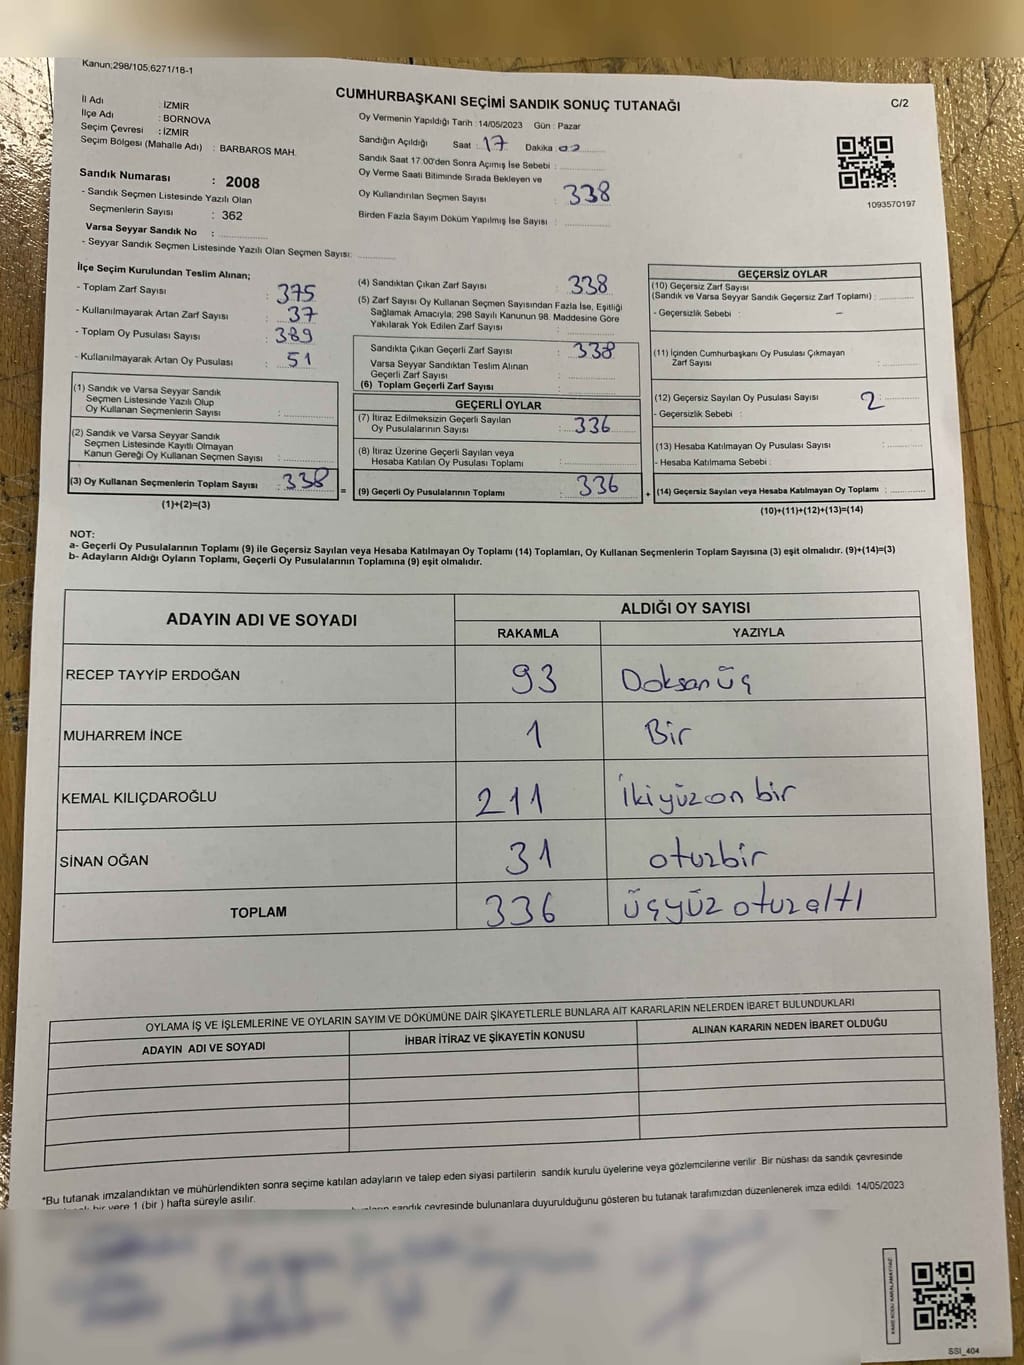 Kanun;298/105,6271/18-1
CUMHURBAŞKANI SEÇİMİ SANDIK SONUÇ TUTANAĞI
C/2
İl Adı : İZMİR
İlçe Adı : BORNOVA
Seçim Çevresi : İZMİR
Seçim Bölgesi (Mahalle Adı) : BARBAROS MAH.
Sandık Numarası : 2008
- Sandık Seçmen Listesinde Yazılı Olan
Seçmenlerin Sayısı : 362
Varsa Seyyar Sandık No :
- Seyyar Sandık Seçmen Listesinde Yazılı Olan Seçmen Sayısı:
Oy Vermenin Yapıldığı Tarih :14/05/2023 Gün : Pazar
Sandığın Açıldığı Saat : 17 Dakika :
Sandık Saat 17.00'den Sonra Açımış İse Sebebi :
Oy Verme Saati Bitiminde Sırada Bekleyen ve
Oy Kullandırılan Seçmen Sayısı : 338
Birden Fazla Sayım Döküm Yapılmış İse Sayısı :
1093570197
İlçe Seçim Kurulundan Teslim Alınan;
- Toplam Zarf Sayısı : 375
- Kullanılmayarak Artan Zarf Sayısı : 37
- Toplam Oy Pusulası Sayısı : 389
- Kullanılmayarak Artan Oy Pusulası : 51
(1) Sandık ve Varsa Seyyar Sandık
Seçmen Listesinde Yazılı Olup
Oy Kullanan Seçmenlerin Sayısı :
(2) Sandık ve Varsa Seyyar Sandık
Seçmen Listesinde Kayıtlı Olmayan
Kanun Gereği Oy Kullanan Seçmen Sayısı :
(3) Oy Kullanan Seçmenlerin Toplam Sayısı : 338
(1)+(2)=(3)
=
(4) Sandıktan Çıkan Zarf Sayısı : 338
(5) Zarf Sayısı Oy Kullanan Seçmen Sayısından Fazla İse, Eşitliği
Sağlamak Amacıyla; 298 Sayılı Kanunun 98. Maddesine Göre
Yakılarak Yok Edilen Zarf Sayısı :
Sandıkta Çıkan Geçerli Zarf Sayısı : 338
Varsa Seyyar Sandıktan Teslim Alınan
Geçerli Zarf Sayısı :
(6) Toplam Geçerli Zarf Sayısı :
GEÇERLİ OYLAR
(7) İtiraz Edilmeksizin Geçerli Sayılan
Oy Pusulalarının Sayısı : 336
(8) İtiraz Üzerine Geçerli Sayılan veya
Hesaba Katılan Oy Pusulası Toplamı :
(9) Geçerli Oy Pusulalarının Toplamı : 336
+
GEÇERSİZ OYLAR
(10) Geçersiz Zarf Sayısı
(Sandık ve Varsa Seyyar Sandık Geçersiz Zarf Toplamı) :
- Geçersizlik Sebebi : –
(11) İçinden Cumhurbaşkanı Oy Pusulası Çıkmayan
Zarf Sayısı :
(12) Geçersiz Sayılan Oy Pusulası Sayısı : 2
- Geçersizlik Sebebi :
(13) Hesaba Katılmayan Oy Pusulası Sayısı :
- Hesaba Katılmama Sebebi :
(14) Geçersiz Sayılan veya Hesaba Katılmayan Oy Toplamı :
(10)+(11)+(12)+(13)=(14)
NOT:
a- Geçerli Oy Pusulalarının Toplamı (9) ile Geçersiz Sayılan veya Hesaba Katılmayan Oy Toplamı (14) Toplamları, Oy Kullanan Seçmenlerin Toplam Sayısına (3) eşit olmalıdır. (9)+(14)=(3)
b- Adayların Aldığı Oyların Toplamı, Geçerli Oy Pusulalarının Toplamına (9) eşit olmalıdır.
ADAYIN ADI VE SOYADI ALDIĞI OY SAYISI
RAKAMLA YAZIYLA
RECEP TAYYİP ERDOĞAN 93 Doksanüç
MUHARREM İNCE 1 Bir
KEMAL KILIÇDAROĞLU 211 İkiyüzon bir
SİNAN OĞAN 31 otuzbir
TOPLAM 336 üçyüz otuz altı
OYLAMA İŞ VE İŞLEMLERİNE VE OYLARIN SAYIM VE DÖKÜMÜNE DAİR ŞİKAYETLERLE BUNLARA AİT KARARLARIN NELERDEN İBARET BULUNDUKLARI
ADAYIN ADI VE SOYADI İHBAR İTİRAZ VE ŞİKAYETİN KONUSU ALINAN KARARIN NEDEN İBARET OLDUĞU
*Bu tutanak imzalandıktan ve mühürlendikten sonra seçime katılan adayların ve talep eden siyasi partilerin sandık kurulu üyelerine veya gözlemcilerine verilir. Bir nüshası da sandık çevresinde
bir yere 1 (bir ) hafta süreyle asılır.
sandık çevresinde bulunanlara duyurulduğunu gösteren bu tutanak tarafımızdan düzenlenerek imza edildi. 14/05/2023
SSI_404